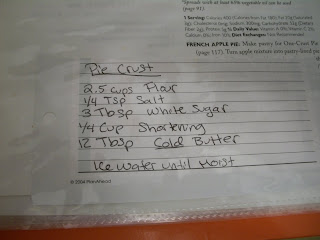 *Spreads with at least 65% vegetable oil can be used
(page 91)
1 Serving: Calories 400 (Calories from Fat 180); Fat 21g (Saturated
Protein 3g % Daily Value: Vitamin A 0%; Vitamin C
Calcium 0%; Iron Diet Exchanges: Not Recommended
FRENCH APPLE PIE: Make pastry for One-Crust Pie
(page 157). Turn apple mixture into pastry-lined
Pie Crust
2.5 cups Flour
1/4 TSP Salt
3 Tbsp White Sugar
1/4 Cup Shortening
12 Tbsp Cold Butter
Ice Water until Moist